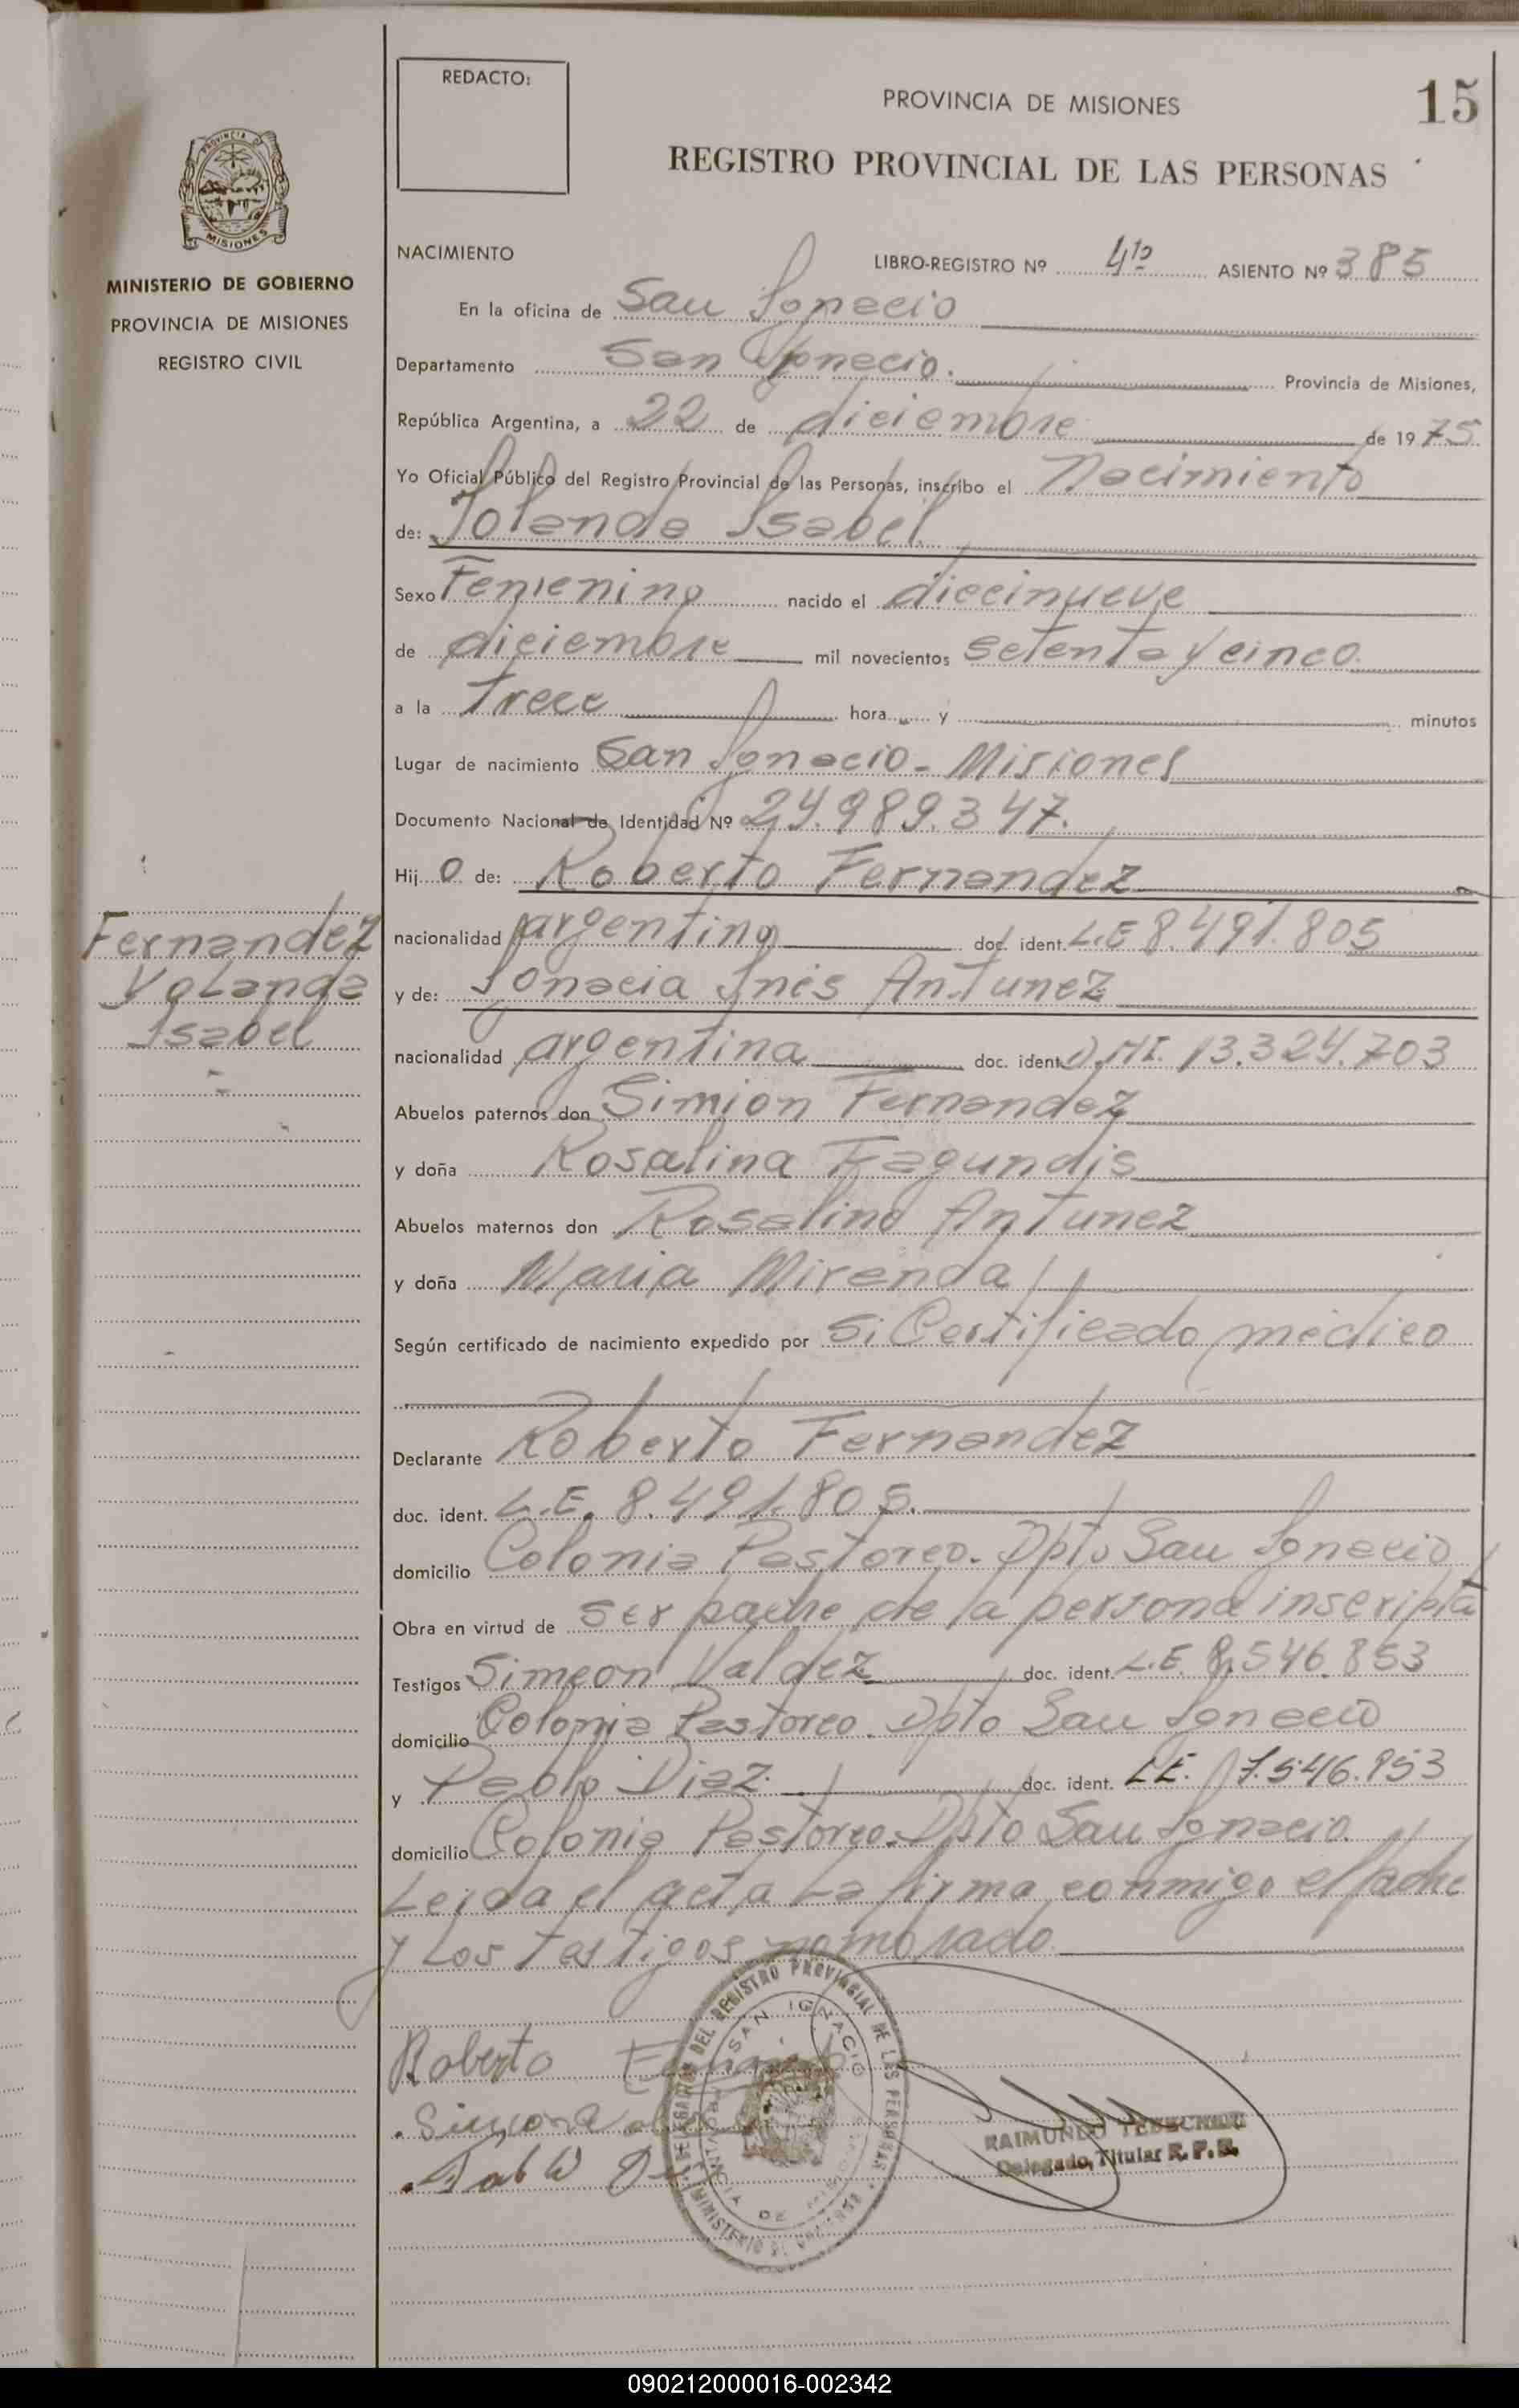 REDACTO:
PROVINCIA DE MISIONES
15
REGISTRO PROVINCIAL DE LAS PERSONAS
PROVINCIA DE
MISIONES
MINISTERIO DE GOBIERNO
PROVINCIA DE MISIONES
REGISTRO CIVIL
NACIMIENTO
LIBRO-REGISTRO Nº 4to ASIENTO Nº 385
En la oficina de San Ignacio
Departamento San Ignacio. Provincia de Misiones,
República Argentina, a 22 de diciembre de 1975.
Yo Oficial Público del Registro Provincial de las Personas, inscribo el Nacimiento
de: Yolanda Isabel
Sexo Femenino nacido el diecinueve
de diciembre mil novecientos setenta y cinco.
a la trece hora y minutos
Lugar de nacimiento San Ignacio - Misiones
Documento Nacional de Identidad Nº 24.989.347.
Hij o de: Roberto Fernandez
nacionalidad argentino doc. ident. L.E 8.491.805
y de: Ignacia Inés Antunez
nacionalidad argentina doc. ident. D.N.I. 13.324.703
Abuelos paternos don Simion Fernandez
y doña Rosalina Fagundis
Abuelos maternos don Rosalino Antunez
y doña Maria Mirenda
Según certificado de nacimiento expedido por Si Certificado médico
Declarante Roberto Fernandez
doc. ident. L.E. 8.491.805.
domicilio Colonia Pastoreo. Dpto San Ignacio
Obra en virtud de ser padre de la persona inscripta
Testigos Simeon Valdez doc. ident. L.E. 8.546.853
domicilio Colonia Pastoreo. Dpto San Ignacio
y Pablo Diaz. doc. ident. L.E. 7.546.953
domicilio Colonia Pastoreo. Dpto San Ignacio.
Leida el acta La firma conmigo el padre
y Los testigos nombrado.
Fernandez
Yolanda
Isabel
Roberto
DELEGACION DEL REGISTRO PROVINCIAL DE LAS PERSONAS
SAN IGNACIO
PROVINCIA DE MISIONES
MINISTERIO DE GOBIERNO
RAIMUNDO
Delegado Titular R. P. P.
090212000016-002342